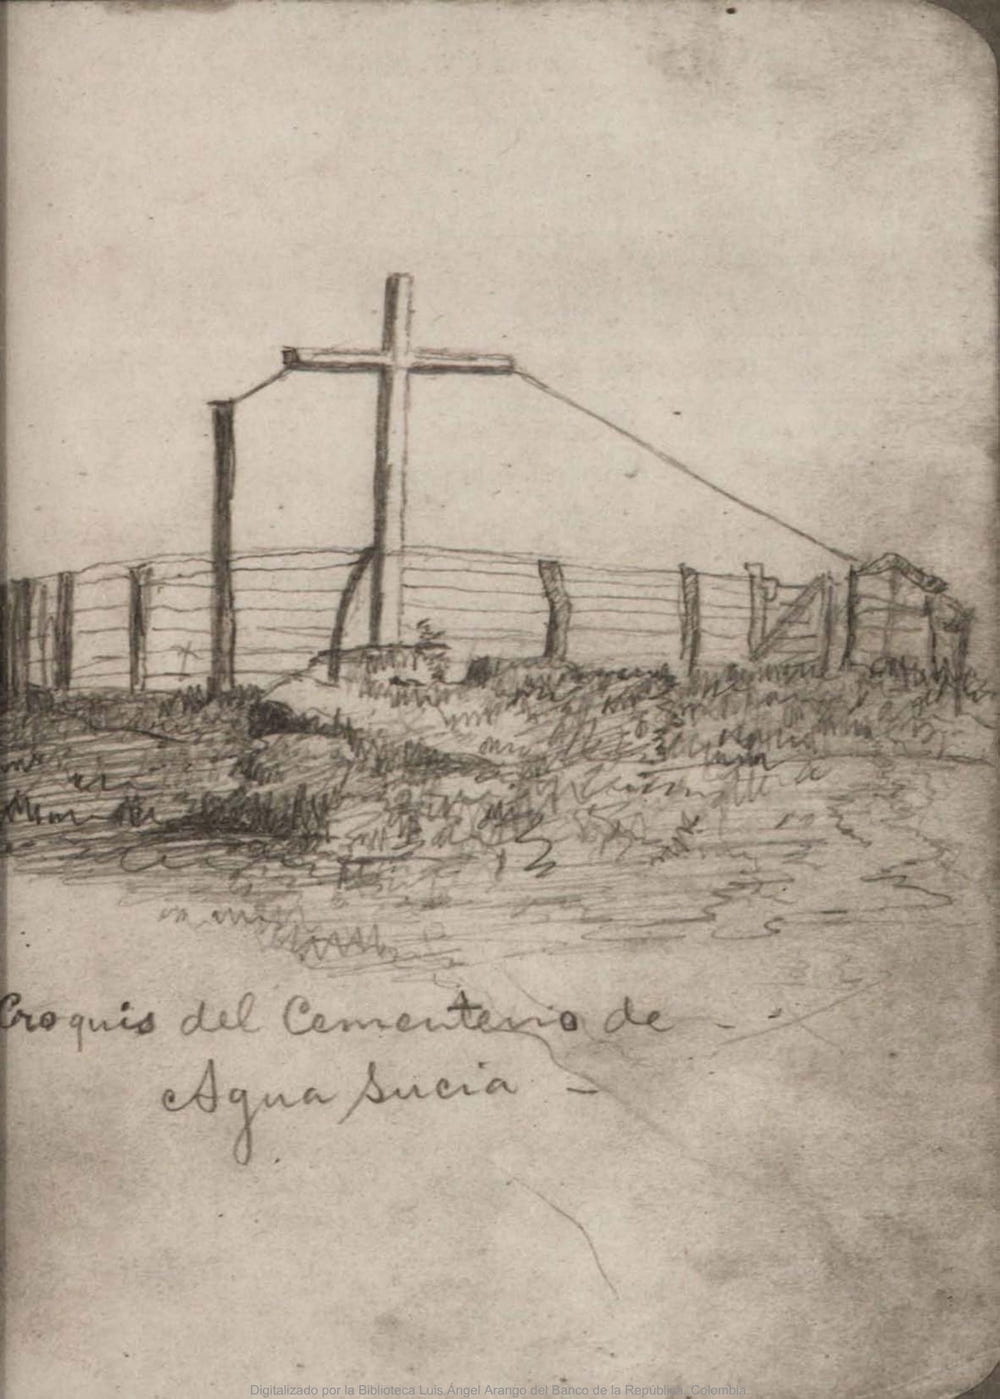 Croquis del Cementerio de - -
Agua Sucia -
Digitalizado por la Biblioteca Luis Ángel Arango del Banco de la República, Colombia.